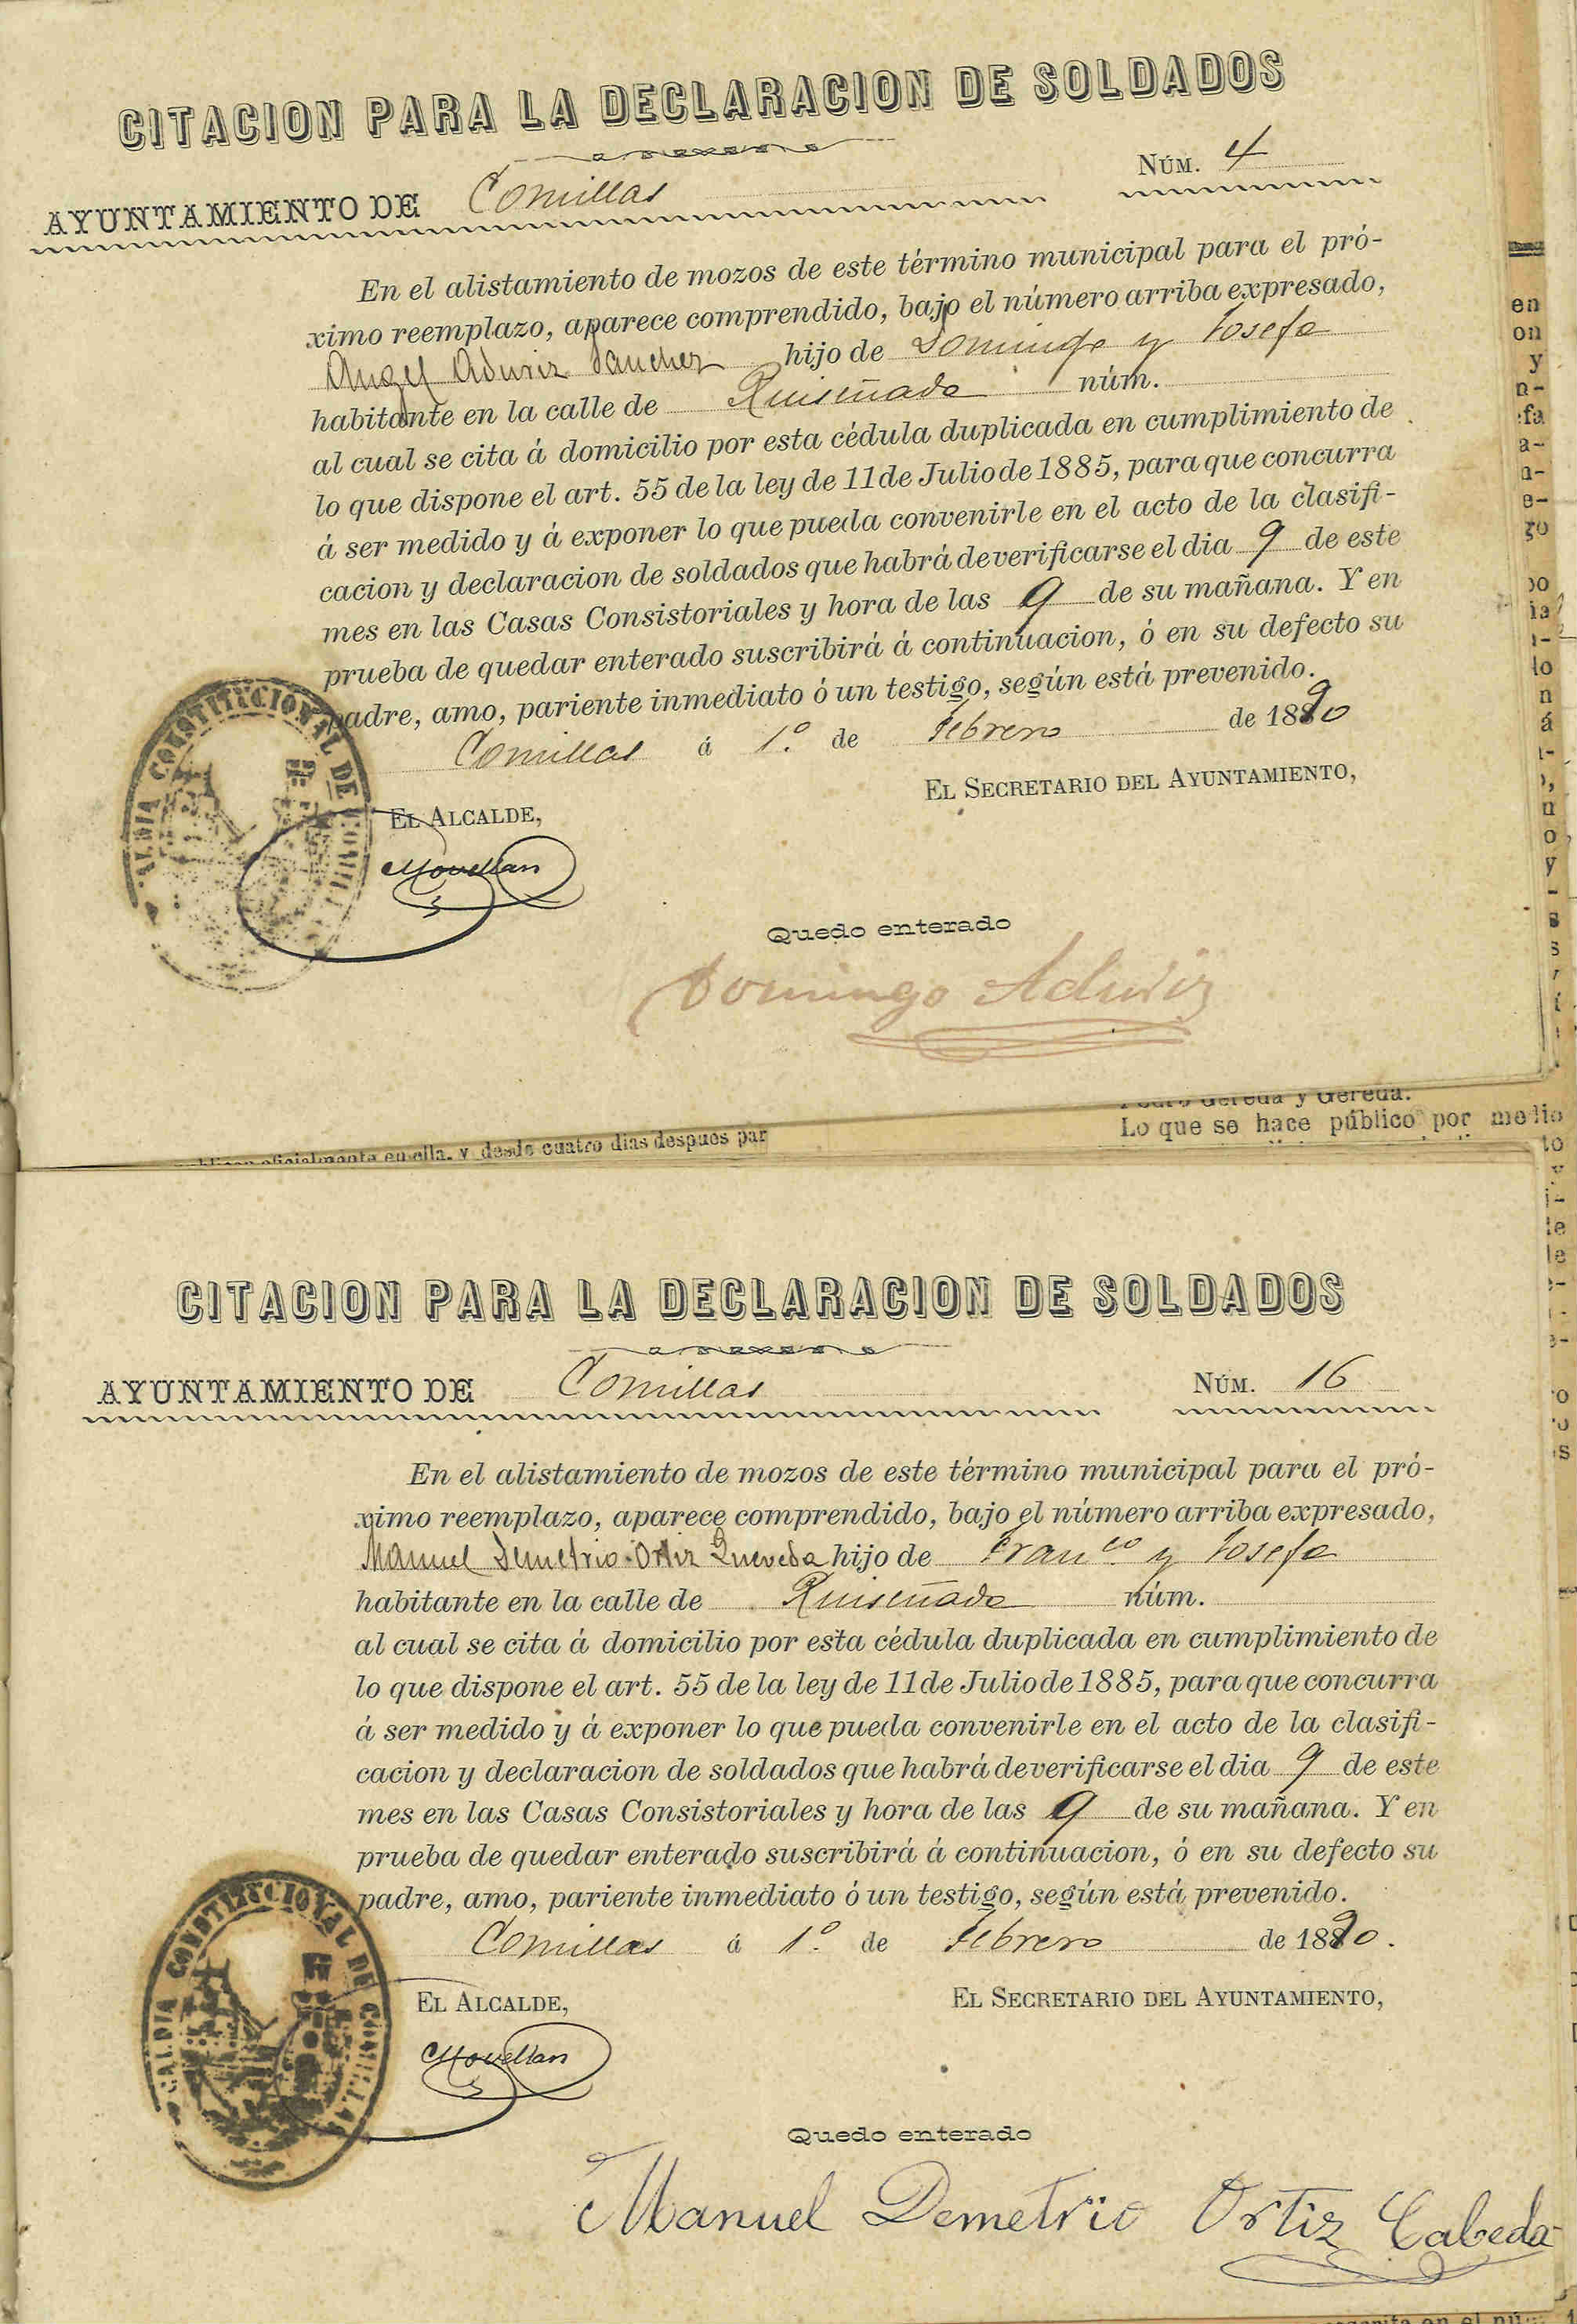 CITACION PARA LA DECLARACION DE SOLDADOS
AYUNTAMIENTO DE Comillas NÚM. 4
En el alistamiento de mozos de este término municipal para el pró-
ximo reemplazo, aparece comprendido, bajo el número arriba expresado,
Angel Aduriz Sanchez hijo de Domingo y Josefa
habitante en la calle de Ruiseñada núm.
al cual se cita á domicilio por esta cédula duplicada en cumplimiento de
lo que dispone el art. 55 de la ley de 11 de Julio de 1885, para que concurra
á ser medido y á exponer lo que pueda convenirle en el acto de la clasifi-
cacion y declaracion de soldados que habrá de verificarse el dia 9 de este
mes en las Casas Consistoriales y hora de las 9 de su mañana. Y en
prueba de quedar enterado suscribirá á continuacion, ó en su defecto su
padre, amo, pariente inmediato ó un testigo, según está prevenido.
Comillas á 1.º de Febrero de 1890
EL ALCALDE, EL SECRETARIO DEL AYUNTAMIENTO,
ALCALDIA CONSTITUCIONAL DE COMILLAS
Movellan
Quedo enterado
Domingo Aduriz
Lo que se hace público por medio
oficialmente en ella, y desde cuatro dias despues par
CITACION PARA LA DECLARACION DE SOLDADOS
AYUNTAMIENTO DE Comillas NÚM. 16
En el alistamiento de mozos de este término municipal para el pró-
ximo reemplazo, aparece comprendido, bajo el número arriba expresado,
Manuel Demetrio Ortiz Queveda hijo de Fran.co y Josefa
habitante en la calle de Ruiseñada núm.
al cual se cita á domicilio por esta cédula duplicada en cumplimiento de
lo que dispone el art. 55 de la ley de 11 de Julio de 1885, para que concurra
á ser medido y á exponer lo que pueda convenirle en el acto de la clasifi-
cacion y declaracion de soldados que habrá de verificarse el dia 9 de este
mes en las Casas Consistoriales y hora de las 9 de su mañana. Y en
prueba de quedar enterado suscribirá á continuacion, ó en su defecto su
padre, amo, pariente inmediato ó un testigo, según está prevenido.
Comillas á 1.º de Febrero de 1890.
EL ALCALDE, EL SECRETARIO DEL AYUNTAMIENTO,
ALCALDIA CONSTITUCIONAL DE COMILLAS
Movellan
Quedo enterado
Manuel Demetrio Ortiz Cabeda